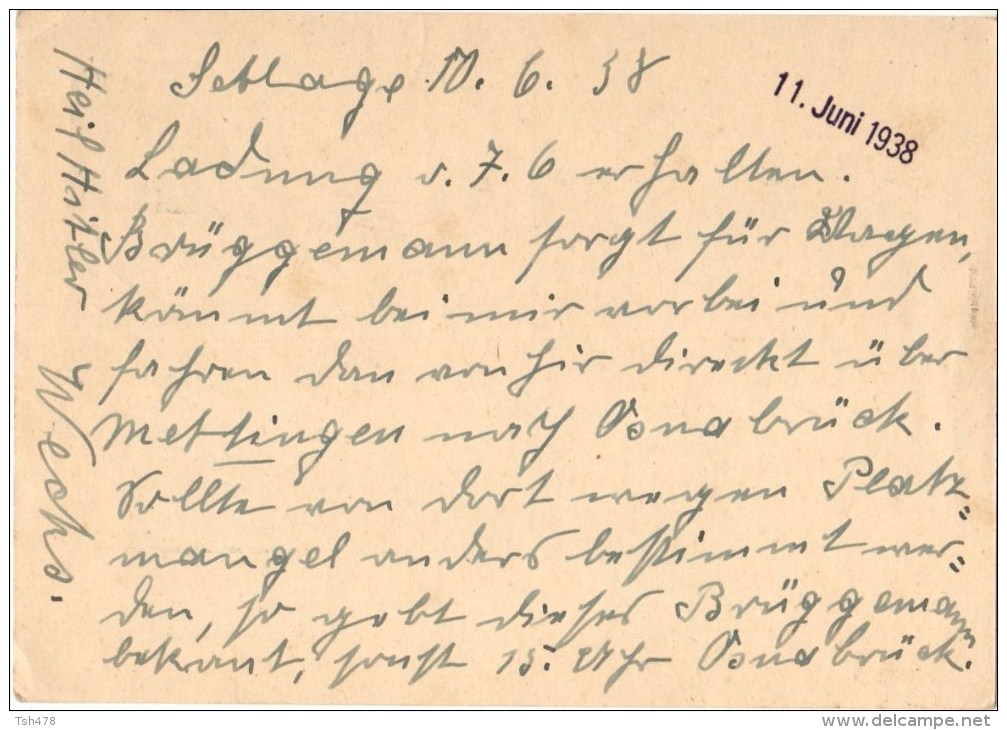 Settlage 10. 6. 38
11. Juni 1938
Ladung v. 7. 6 erhalten.
Brüggemann sorgt für Wagen,
kömmt bei mir vorbei und
fahren dan von hir direckt über
Mettingen nach Osnabrück.
Sollte von dort wegen Platz=
mangel anders bestimmt wer=
den, so gebt dieses Brüggemann
bekant, sonst 15. Uhr Osnabrück.
Heil Hitler
Tsh478
delcampe.net